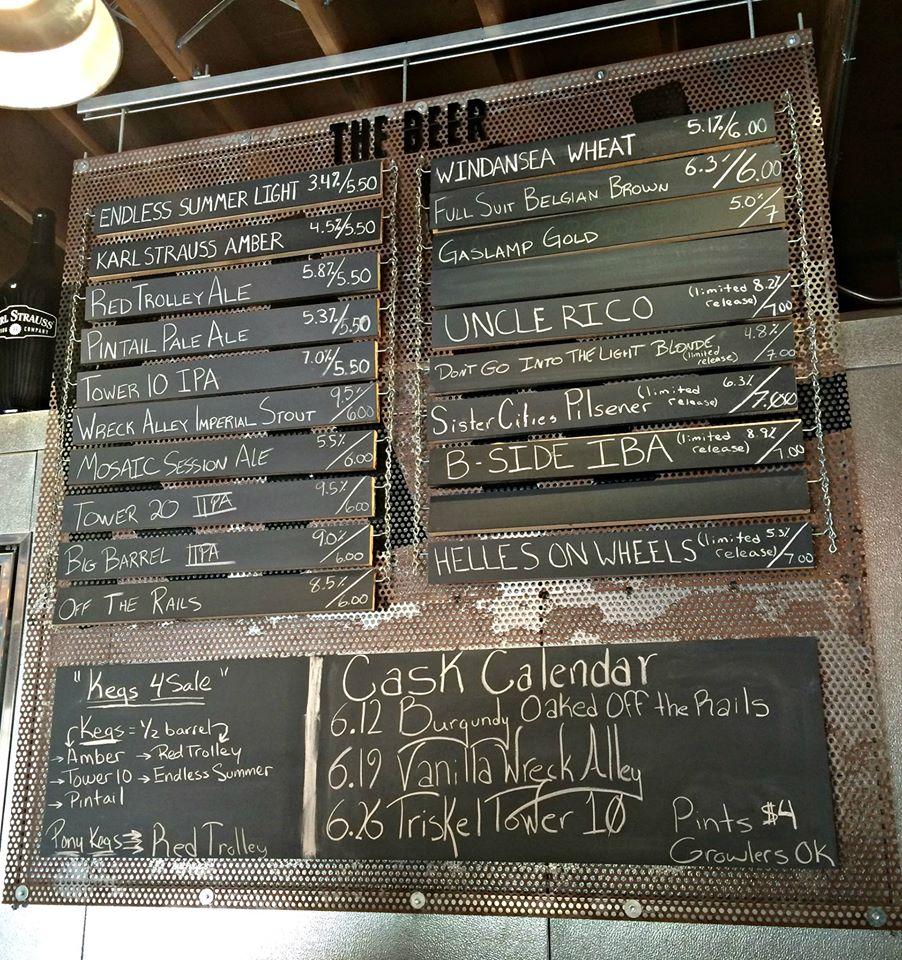 THE BEER
ENDLESS SUMMER LIGHT 3.4%/5.50
KARL STRAUSS AMBER 4.5%/5.50
RED TROLLEY ALE 5.8%/5.50
PINTAIL PALE ALE 5.3%/5.50
TOWER 10 IPA 7.0%/5.50
WRECK ALLEY IMPERIAL STOUT 9.5%/6.00
MOSAIC SESSION ALE 5.5%/6.00
TOWER 20 IIPA 9.5%/6.00
BIG BARREL IIPA 9.0%/6.00
OFF THE RAILS 8.5%/6.00
WINDANSEA WHEAT 5.1%/6.00
FULL SUIT BELGIAN BROWN 6.3%/6.00
GASLAMP GOLD 5.0%/7
UNCLE RICO (limited release) 8.2%/7.00
DON'T GO INTO THE LIGHT BLONDE (limited release) 4.8%/7.00
SISTER CITIES PILSENER (limited release) 6.3%/7.00
B-SIDE IBA (limited release) 8.9%/7.00
HELLES ON WHEELS (limited release) 5.3%/7.00
STRAUSS
COMPANY
"Kegs 4 Sale"
Kegs = 1/2 barrel
→ Amber → Red Trolley
→ Tower 10 → Endless Summer
→ Pintail
Pony Kegs → Red Trolley
Cask Calendar
6.12 Burgundy Oaked Off the Rails
6.19 Vanilla Wreck Alley
6.26 Triskel Tower 10
Pints $4
Growlers OK